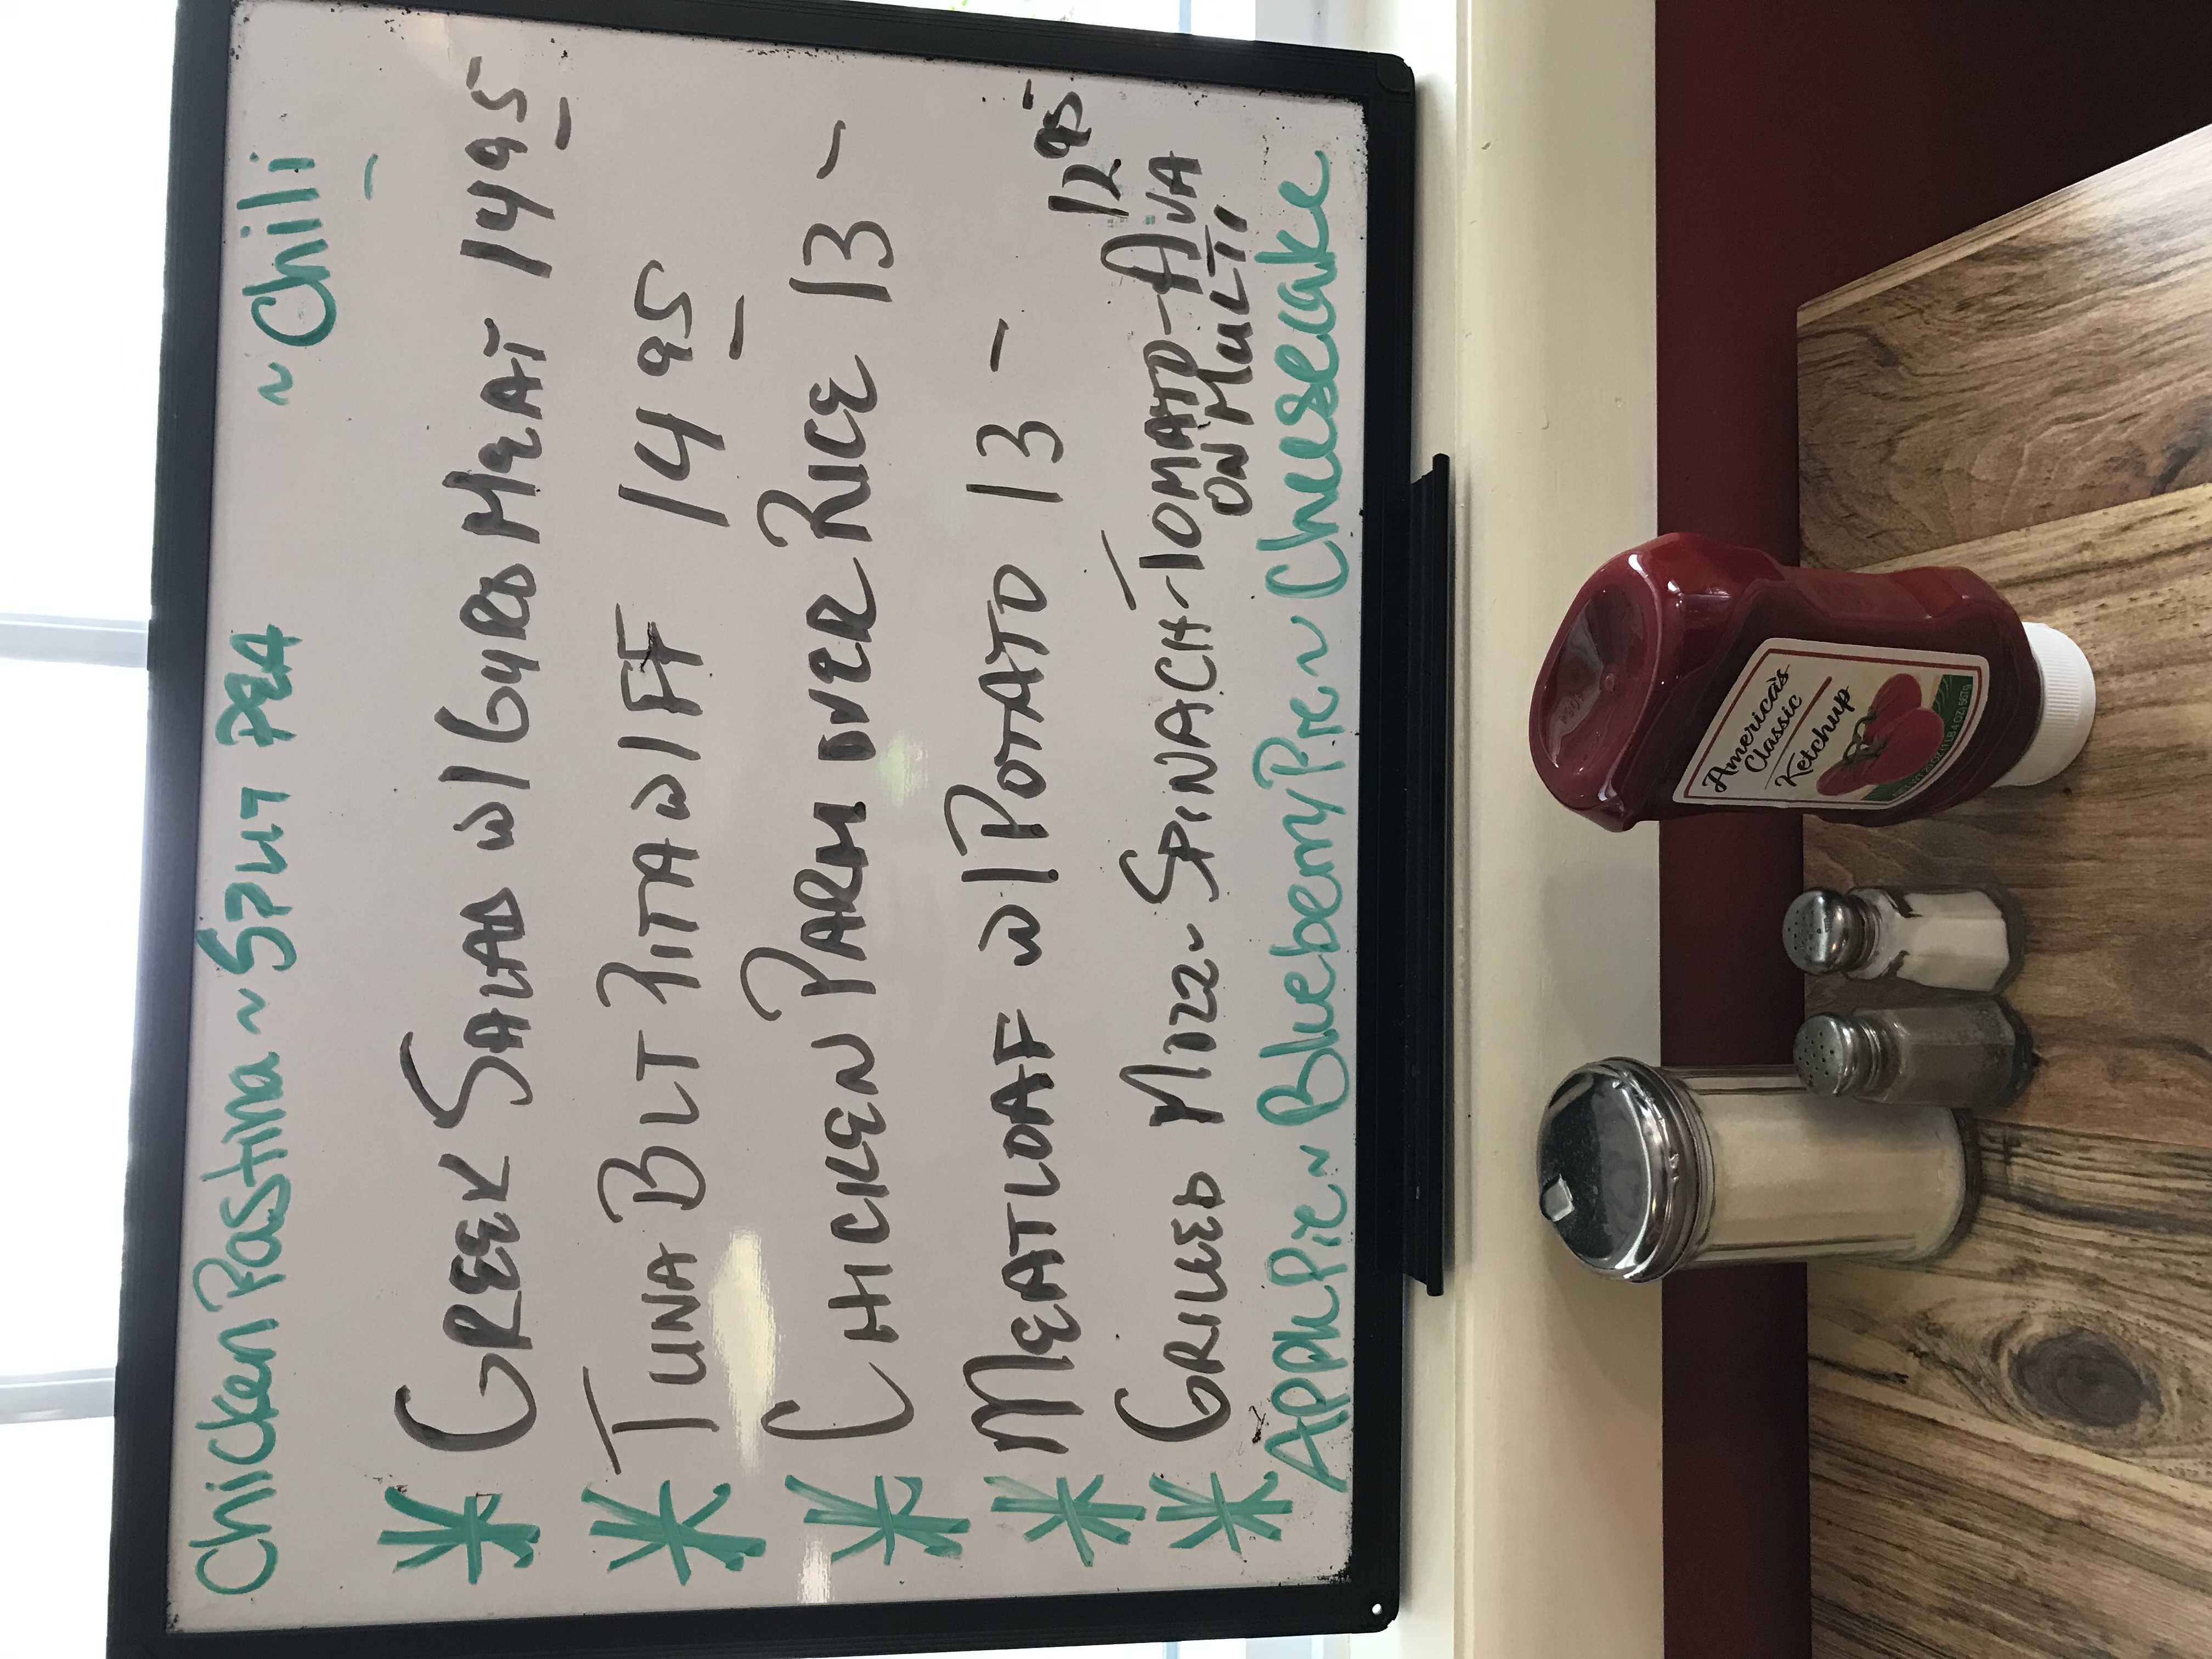 Chicken Pastina ~ SPLIT PEA ~ Chili
* GREEK SALAD w/ GYRO MEAT 14 95
* TUNA BLT PITA w/ FF 14 95
* CHICKEN PARM OVER RICE 13 -
* MEATLOAF w/ POTATO 13 -
* GRILLED MOZZ ~ SPINACH - TOMATO - AVA 12 95
ON MULTI
Apple Pie ~ Blueberry Pie ~ Cheesecake
America's
Classic
Ketchup